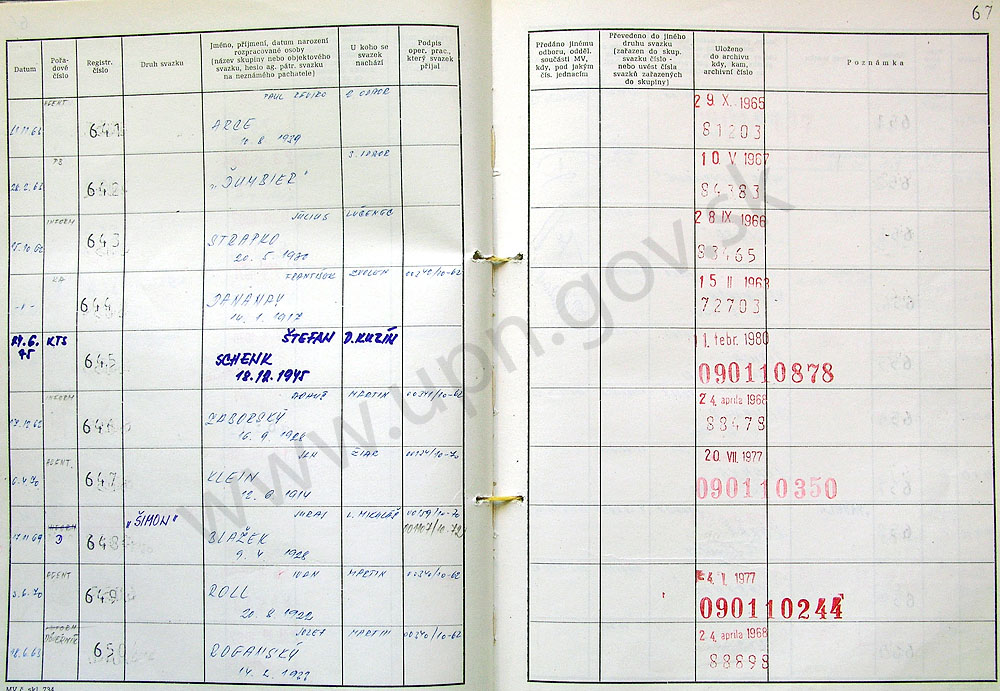 67
Datum
Pořa-
dové
číslo
Registr.
číslo
Druh svazku
Jméno, příjmení, datum narození
rozpracované osoby
(název skupiny nebo objektového
svazku, heslo ag. pátr. svazku
na neznámého pachatele)
U koho se
svazek
nachází
Podpis
oper. prac.,
který svazek
přijal
Předáno jinému
odboru, odděl.
součásti MV,
kdy, pod jakým
čís. jednacím
Převedeno do jiného
druhu svazku
(zařazen do skup.
svazku číslo -
nebo uvést čísla
svazků zařazených
do skupiny)
Uloženo
do archivu
kdy, kam,
archivní číslo
Poznámka
AGENT
641
ARCE
10. 8 1939
29. X. 1965
81203
642
„ĎUMBIER"
10. V 1967
84383
INFORM
643
JÚLIUS LUČENEC
STRAPKO
20. 5. 1930
28 IX 1966
83465
KA
644
FRANTIŠEK ZVOLEN 00240/10-62
14. 1. 1917
15 II 1963
72703
KTS
645
ŠTEFAN D. KUZÍN
SCHENK
18.12.1945
1. febr. 1980
090110878
INFORM
17.12.62
646
MARTIN 00240/10-62
ZÁBORSKÝ
16. 9. 1928
24. aprila 1968
88478
AGENT.
6.4.70
647
JÁN ŽIAR 00134/10-70
KLEIN
1914
20. VII. 1977
090110350
17.11.69
D
648
„ŠIMON"
JURAJ L. MIKULÁŠ 00159/10-70
001107/10-72
BLAŽEK
9. 4. 1928
AGENT
3.6.70
649
IVAN MARTIN 00240/10-62
ROLL
20. 8. 1922
4. I. 1977
090110244
DÔVERNÍK
18.6.63
650
JOZEF MARTIN 00240/10-62
ROGANSKÝ
14. 2. 1922
24. aprila 1968
88898
MV č. skl. 734
www.upn.gov.sk